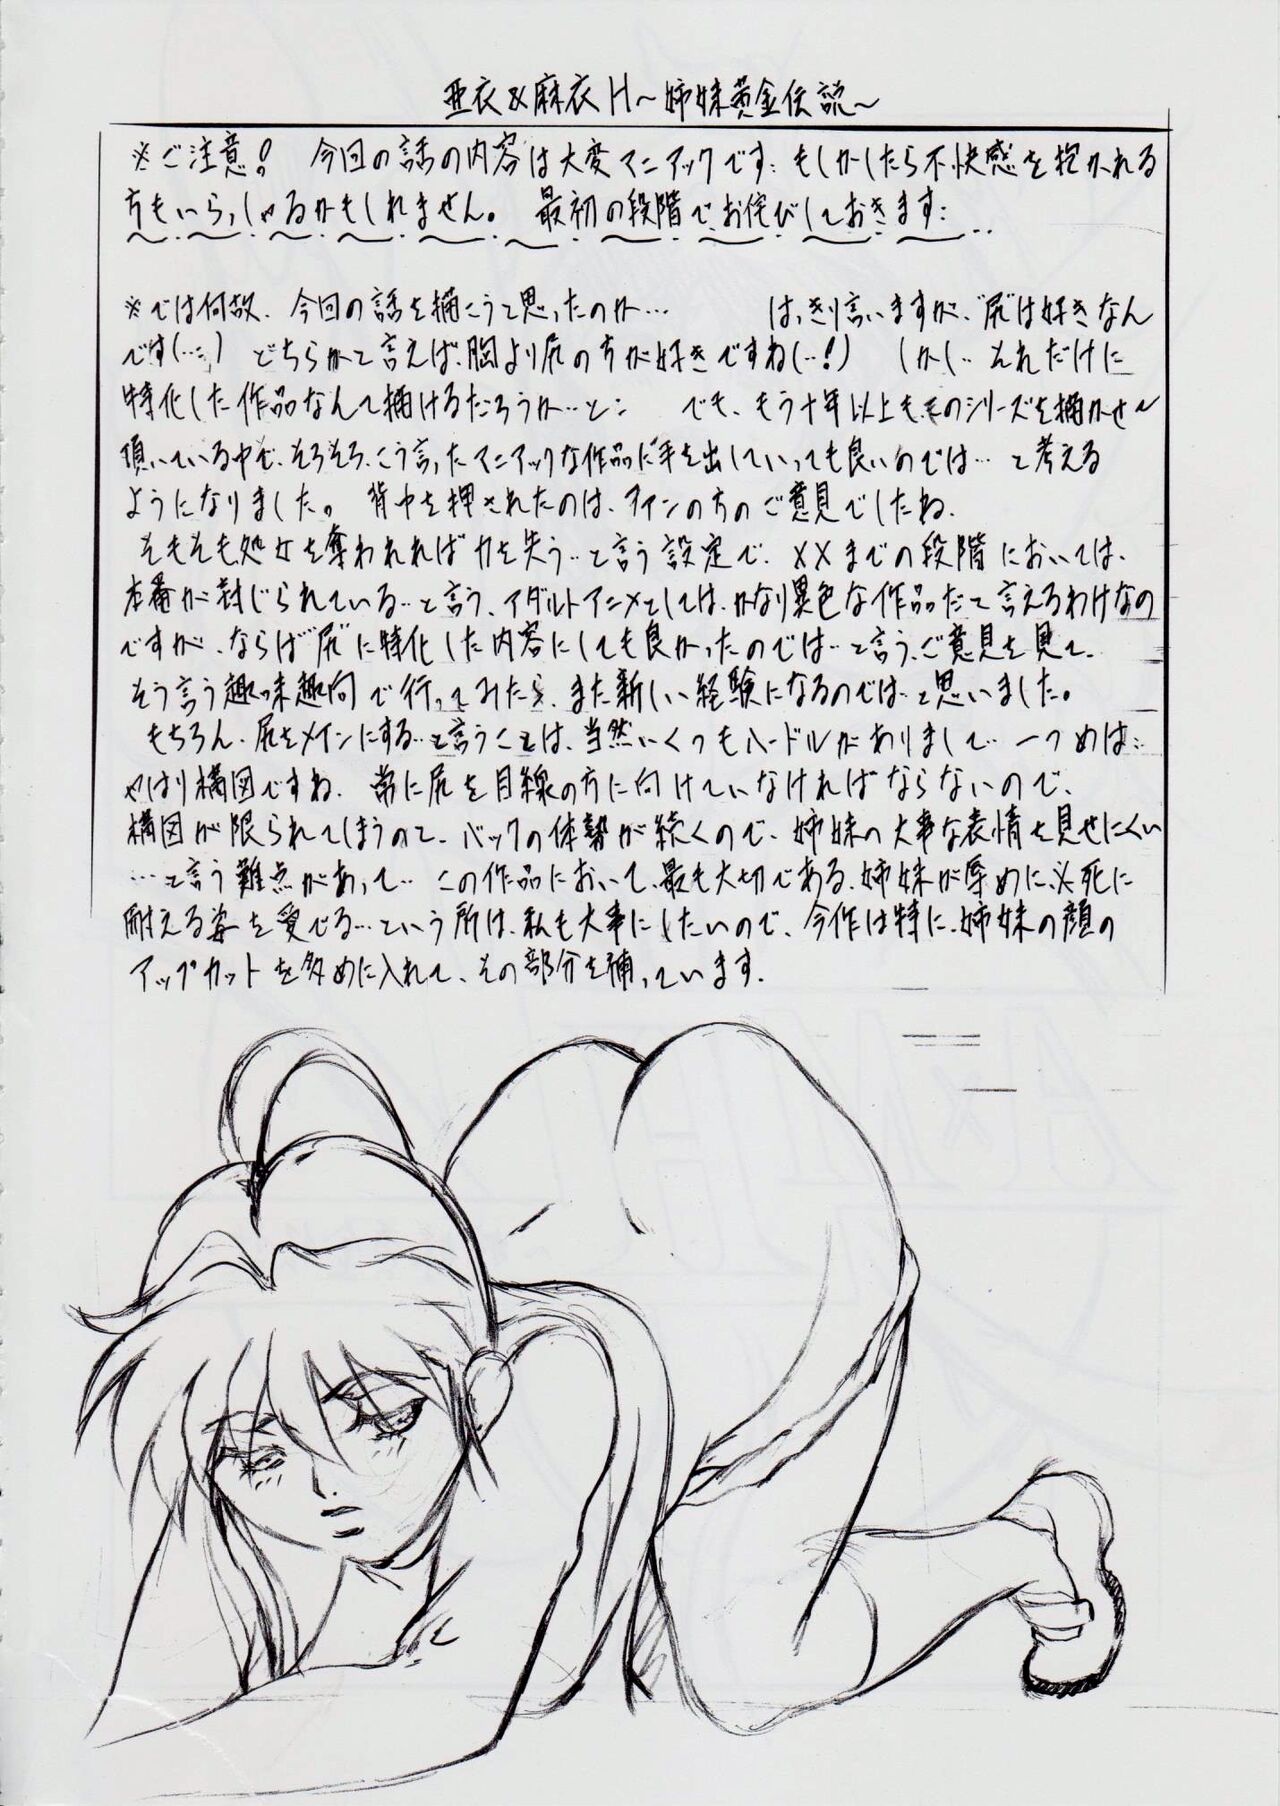 亜衣&麻衣H～姉妹黄金伝説～
※ご注意! 今回の話の内容は大変マニアックです… もしかしたら不快感を抱かれる
方もいらっしゃるかもしれません。 最初の段階でお侘びしておきます…
※では何故、今回の話を描こうと思ったのか… はっきり言いますが、“尻”は好きなん
です(…) どちらかと言えば、胸より尻の方が好きですね(…!) しかし… それだけに
特化した作品なんて描けるだろうか…と… でも、もう十年以上もそのシリーズを描かせて
頂いている中で、そろそろ、こう言ったマニアックな作品に手を出していっても良いのでは…と考える
ようになりました。 背中を押されたのは、ファンの方のご意見でしたね。
そもそも処女を奪われれば力を失う…と言う設定で、××までの段階においては、
本番が封じられている…と言う、アダルトアニメとしては、かなり異色な作品だと言えるわけなの
ですが、ならば“尻”に特化した内容にしても良かったのでは…と言う、ご意見を見て、
そう言う趣味趣向で行ってみたら、また新しい経験になるのでは…と思いました。
もちろん、尻をメインにする…と言うことは、当然いくつもハードルがありまして… 一つめは…
やはり構図ですね、常に尻を目線の方に向けていなければならないので、
構図が限られてしまうのと、バックの体勢が続くので、姉妹の大事な表情を見せにくい
…と言う難点があって… この作品において、最も大切である、姉妹が辱めに、必死に
耐える姿を愛でる…という所は、私も大事にしたいので、今作は特に、姉妹の顔の
アップカットを多めに入れて、その部分を補っています。